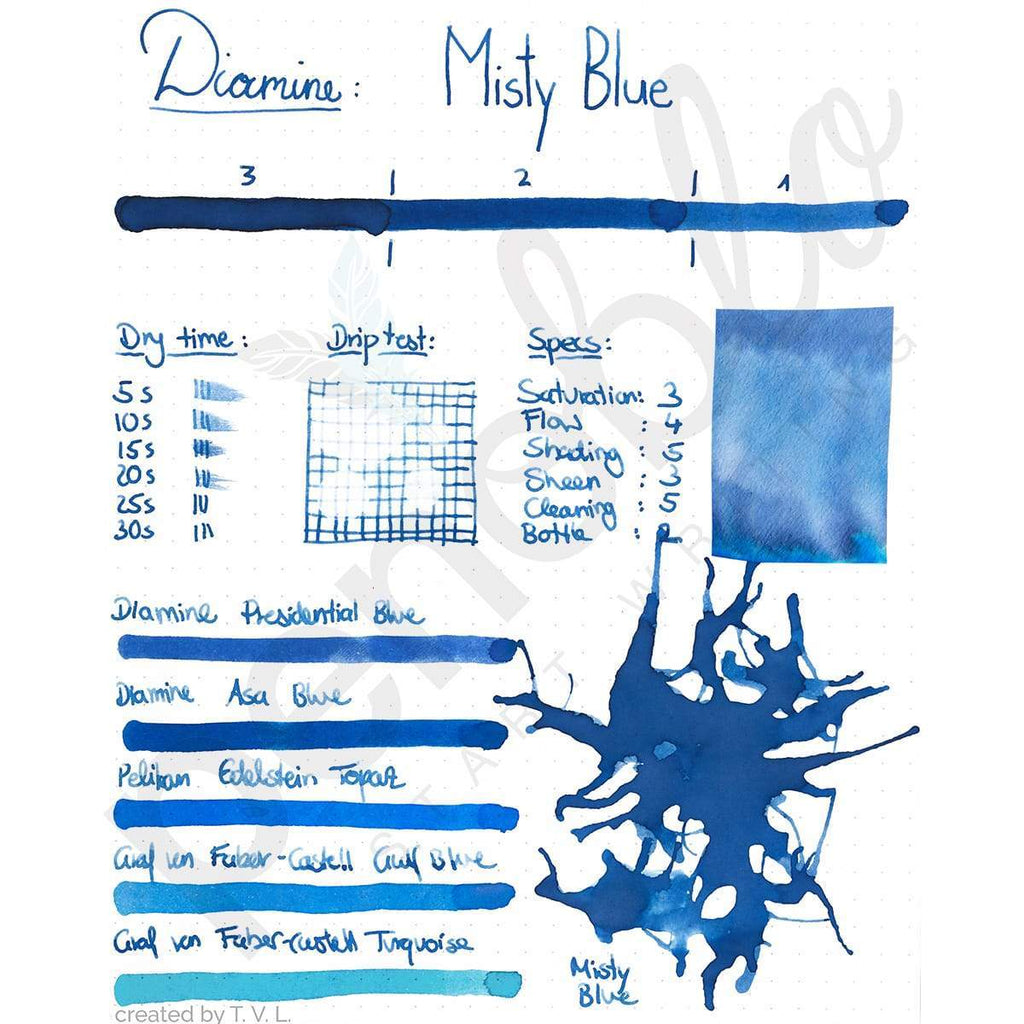 Diamine: Misty Blue
3 | 2 | 1
Dry time:
5s
10s
15s
20s
25s
30s
Drip test:
Specs:
Saturation: 3
Flow : 4
Shading : 5
Sheen : 3
Cleaning : 5
Bottle : 2
Diamine Presidential Blue
Diamine Asa Blue
Pelikan Edelstein Topaz
Graf von Faber-Castell Gulf Blue
Graf von Faber-Castell Turquoise
Misty
Blue
penoblo
START WRITING
created by T. V. L.